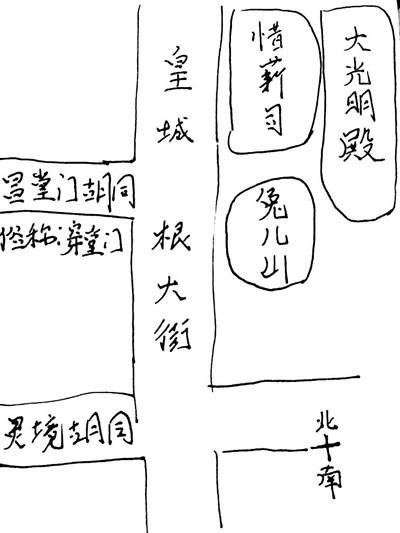 皇城根大街
惜薪司
大光明殿
兔儿山
昌堂门胡同
俗称:穿堂门
灵境胡同
北
南